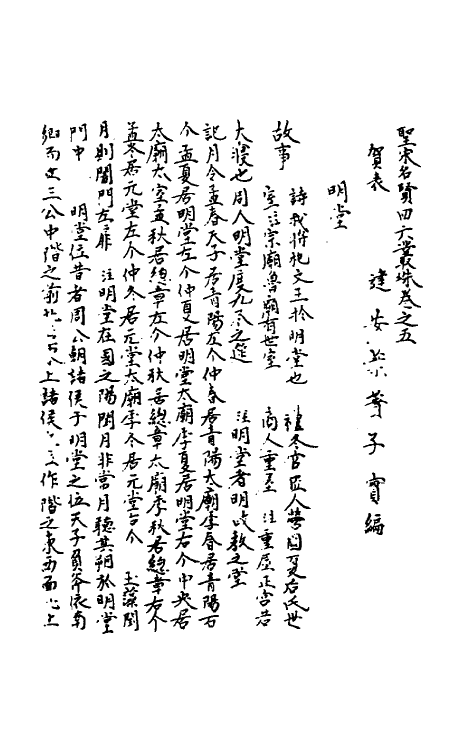 聖宋名賢四六叢珠卷之五
賀表　建安葉蕡子實編
明堂
故事　詩我將祀文王於明堂也　禮冬官匠人營國夏后氏世
室註宗廟魯廟有世室　商人重屋　註重屋正宮若
大寢也周人明堂度九尺之筵　註明堂者明政教之堂
記月令孟春天子居青陽左个仲春居青陽太廟季春居青陽右
个孟夏居明堂左个仲夏居明堂太廟季夏居明堂右个中央居
太廟太室孟秋居總章左个仲秋居總章太廟季秋居總章右个
孟冬居元堂左个仲冬居元堂太廟季冬居元堂右个　玉藻閏
月則闔門左扉　註明堂在國之陽閏月非常月聽其朔於明堂
門中　明堂位昔者周公朝諸侯于明堂之位天子負斧依南
鄉而立三公中階之前北上諸侯之位阼階之東西面北上